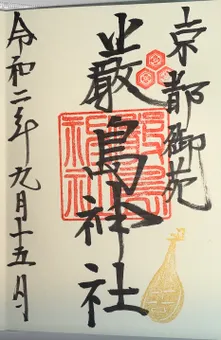 京都御苑
厳島神社
令和二年九月十五日